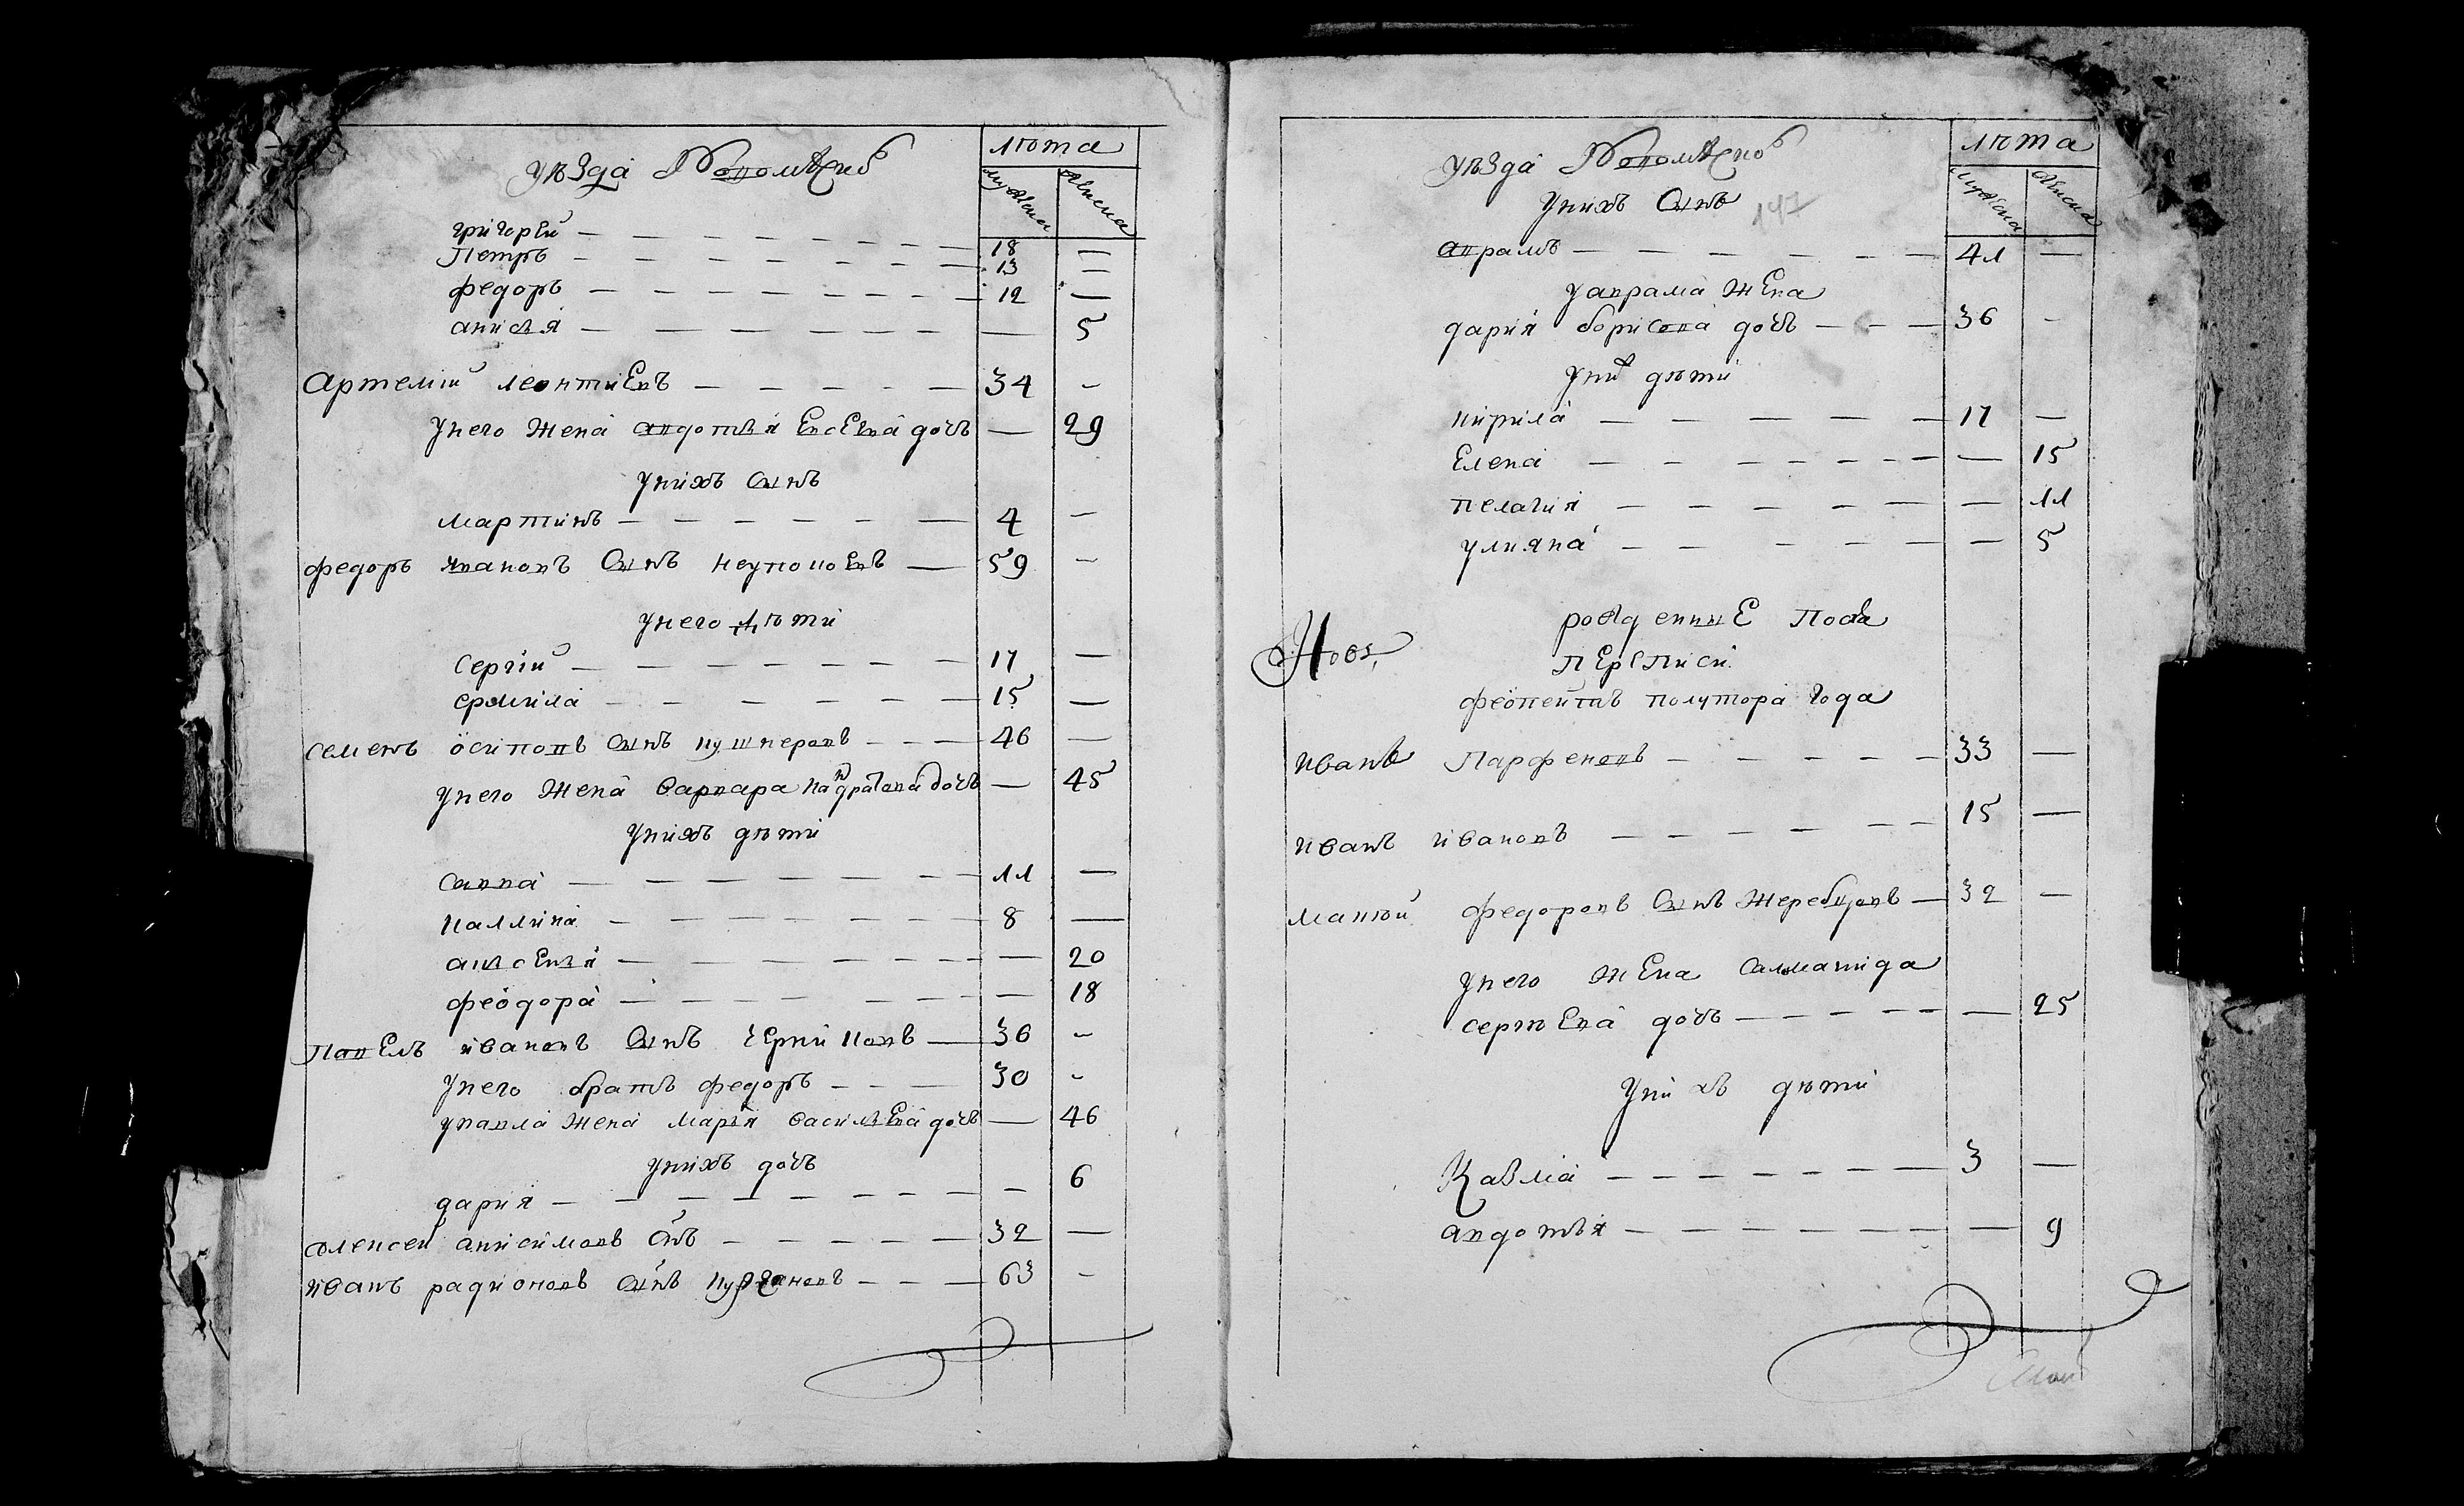 уѣзда
лѣта
мужеска
женска
григорей — 18 —
Петръ — 13 —
федоръ — 12 —
анисья — — 5
Артемій леонтиевъ — 34 —
унего жена авдотья Евсеева дочь — 29
унихъ сынъ
мартинъ — 4 —
федоръ ивановъ сынъ неупокоевъ — 59 —
унего дѣти
Сергій — 17 —
ермила — 15 —
семенъ осиповъ сынъ кушнеровъ — 46 —
унего жена варвара кандратева дочь — 45
унихъ дѣти
савва — 11 —
каллина — 8 —
аксенья — — 20
феодора — — 18
Павелъ ивановъ сынъ чернийковъ — 36 —
унего братъ федоръ — 30 —
упавла жена марья васильева дочь — 46
унихъ дочь
дария — — 6
алексей анисимовъ сынъ — 32 —
иванъ радионовъ сынъ — 63 —
уѣзда
лѣта
мужеска
женска
унихъ сынъ
147
аврамъ — 41 —
уаврама жена
дария борисова дочь — 36 —
унихъ дѣти
кирила — 17 —
Елена — — 15
пелагия — — 11
улияна — — 5
рожденные После
переписи
полутора года
иванъ Парфеновъ — 33 —
иванъ ивановъ — 15 —
макѣй федоровъ сынъ жеребцовъ — 32 —
унего жена саламанида
сергѣева дочь — — 25
унихъ дѣти
Козма — 3 —
авдотья — — 9